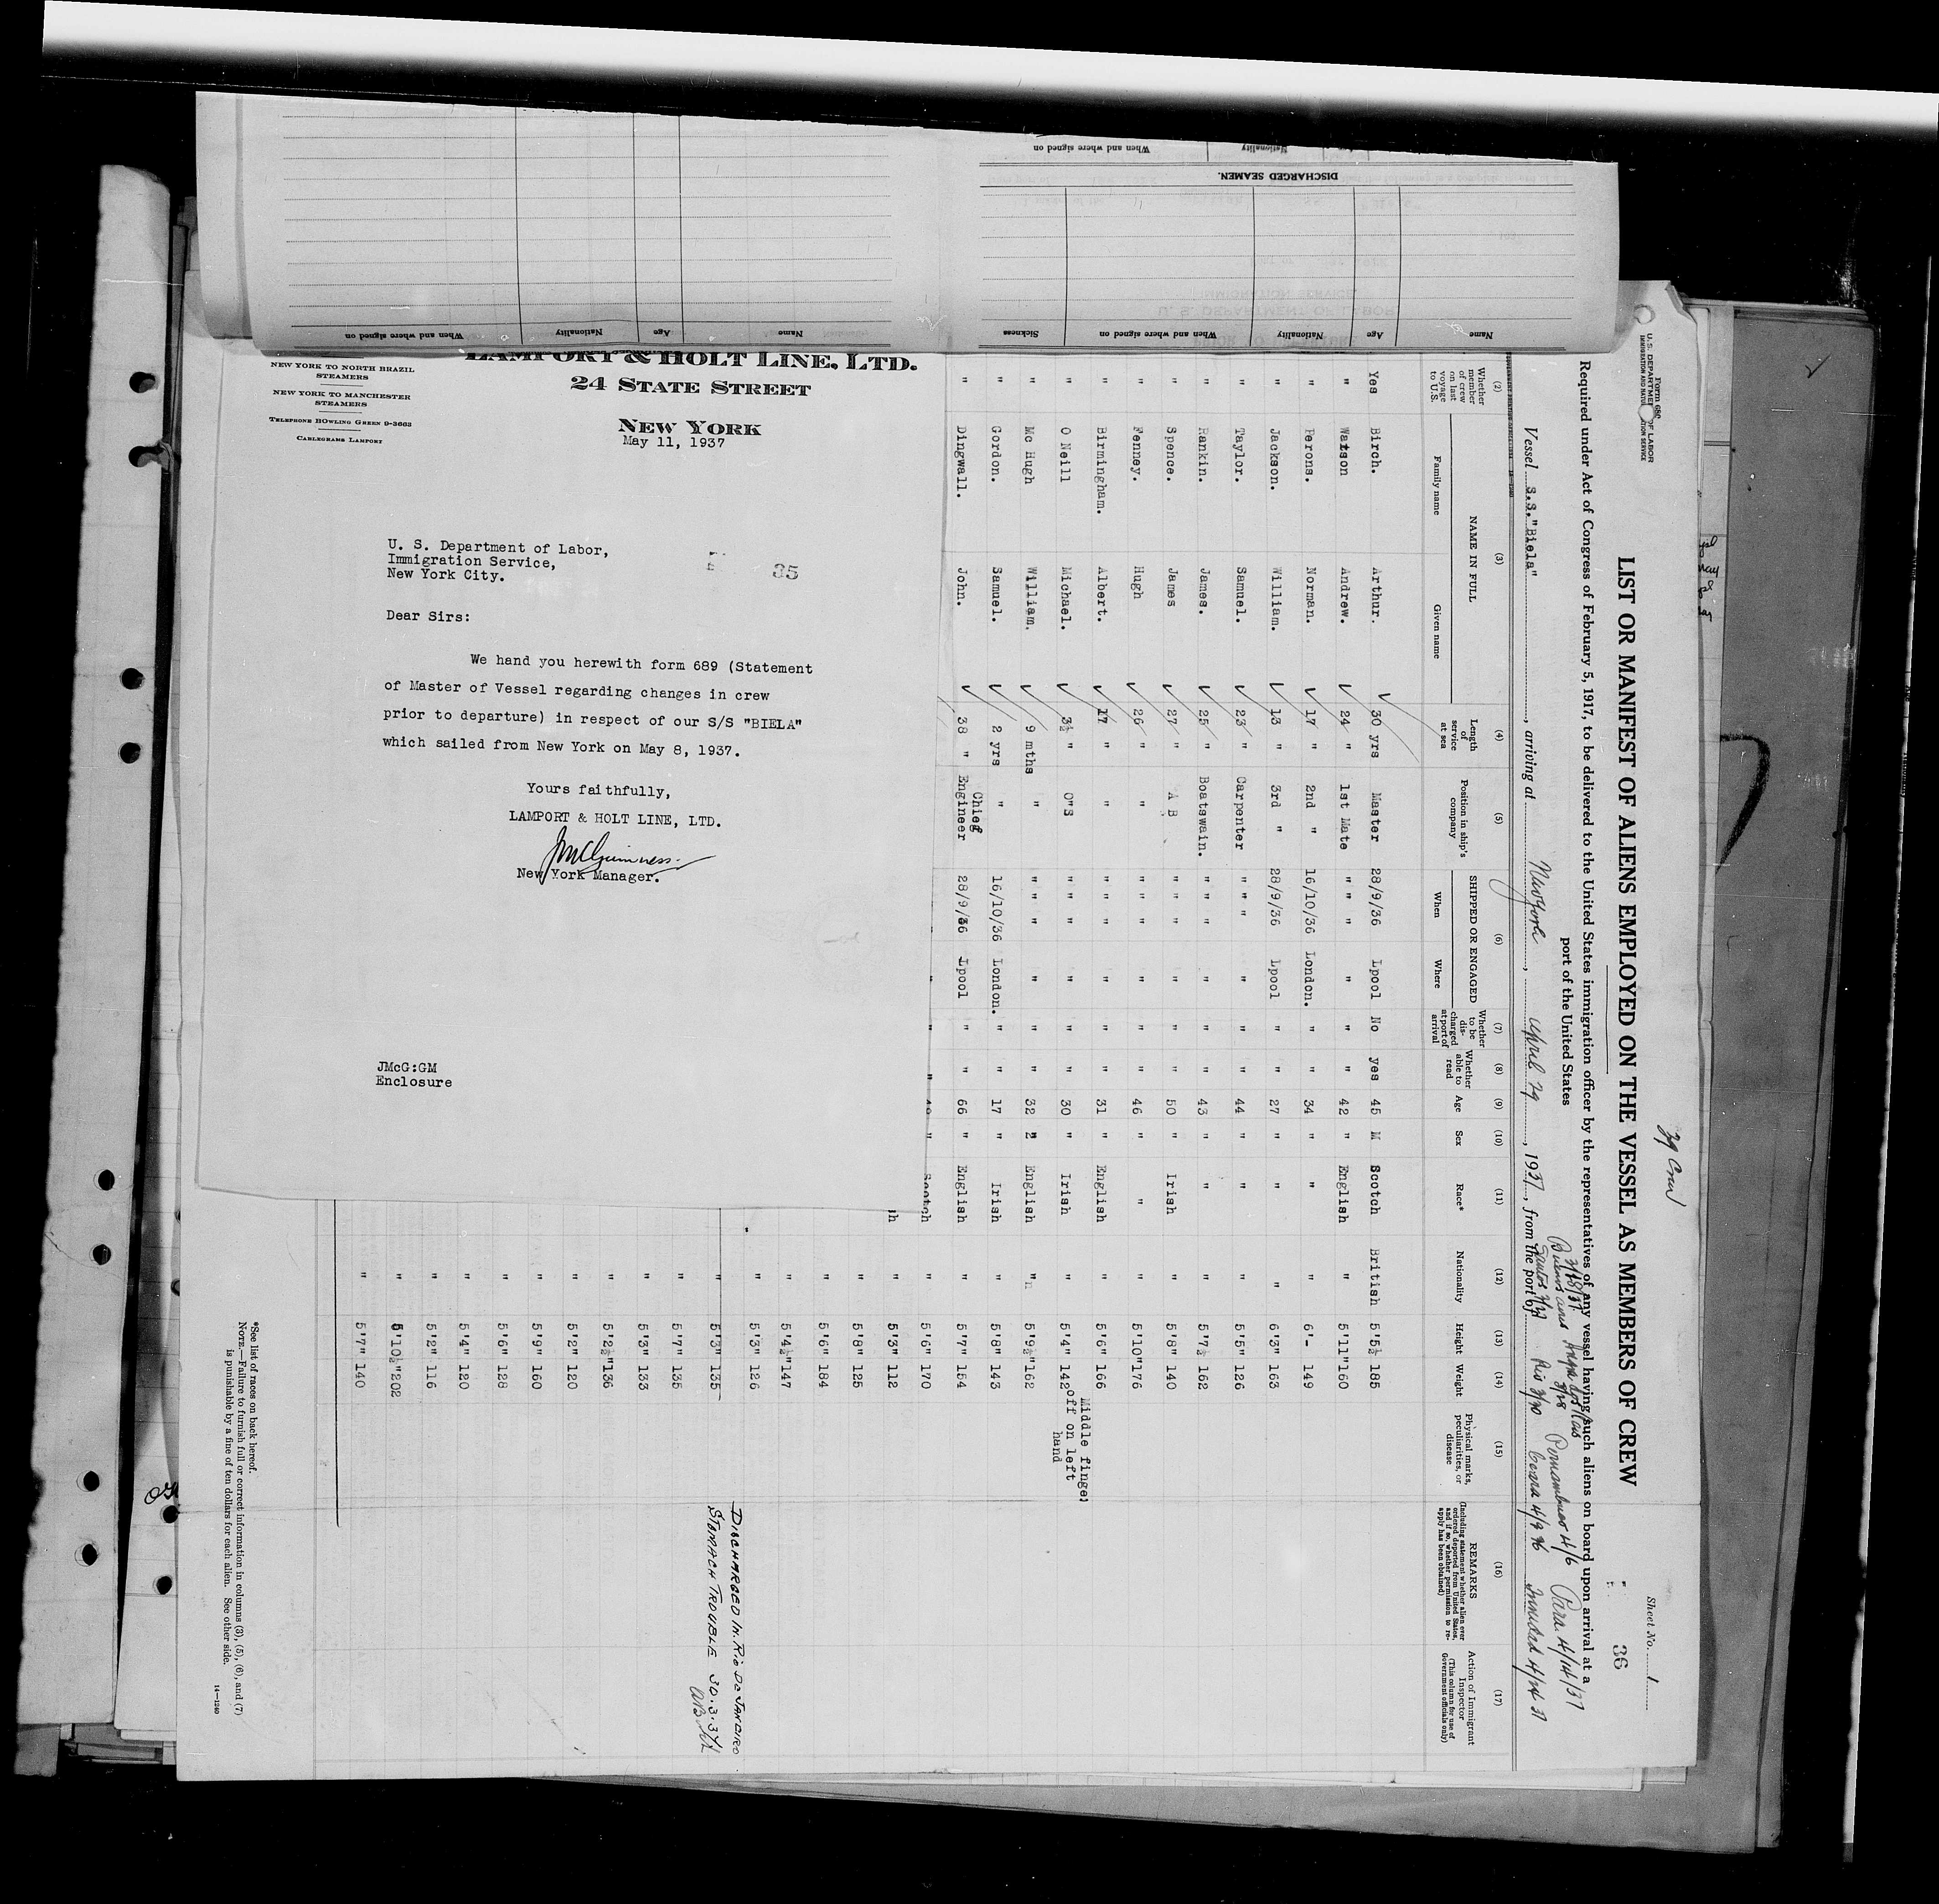 When and where signed on
Nationality
DISCHARGED SEAMEN.
When and where signed on
Nationality
Age
Name
Sickness
When and where signed on
Nationality
Age
Name
LAMPORT & HOLT LINE, LTD.
24 STATE STREET
NEW YORK
NEW YORK TO NORTH BRAZIL
STEAMERS
NEW YORK TO MANCHESTER
STEAMERS
TELEPHONE BOWLING GREEN 9-3663
CABLEGRAMS LAMPORT
May 11, 1937
35
U. S. Department of Labor,
Immigration Service,
New York City.
Dear Sirs:
We hand you herewith form 689 (Statement
of Master of Vessel regarding changes in crew
prior to departure) in respect of our S/S "BIELA"
which sailed from New York on May 8, 1937.
Yours faithfully,
LAMPORT & HOLT LINE, LTD.
JMcGuinness
New York Manager.
JMcG:GM
Enclosure
39 Crew
Form 680
U. S. DEPARTMENT OF LABOR
IMMIGRATION AND NATURALIZATION SERVICE
Sheet No. 1
36
LIST OR MANIFEST OF ALIENS EMPLOYED ON THE VESSEL AS MEMBERS OF CREW
Required under Act of Congress of February 5, 1917, to be delivered to the United States immigration officer by the representatives of any vessel having such aliens on board upon arrival at a
port of the United States
3/18/37
Buenos Aires Pernambuco 4/6 Para. 4/14/37
Vessel S.S."Biela", arriving at New York, April 29, 1937, from the port of Santos Rio 3/30 Ceara 4/9 Trinidad 4/21 37
(2) (3) (4) (5) (6) (7) (8) (9) (10) (11) (12) (13) (14) (15) (16) (17)
Whether member of crew on last voyage to U.S.
NAME IN FULL
Family name Given name
Length of service at sea
Position in ship's company
SHIPPED OR ENGAGED
When Where
Whether to be discharged at port of arrival
Whether able to read
Age
Sex
Race*
Nationality
Height
Weight
Physical marks, peculiarities, or disease
REMARKS
(Including statement whether alien ever ordered deported from United States, and if so, whether permission to reapply has been obtained)
Action of Immigrant Inspector
(This column for use of Government officials only)
Yes Birch. Arthur. 30 yrs Master 28/9/36 Lpool No yes 45 M Scotch British 5'5½ 185
" Watson Andrew. 24 " 1st Mate " " " " " " 42 " English " 5'11" 160
" Perons. Norman. 17 " 2nd " 16/10/36 London. " " 34 " " " 6'- 149
" Jackson. William. 13 " 3rd " 28/9/36 Lpool " " 27 " " " 6'3" 163
" Taylor. Samuel. 23 " Carpenter " " " " " " 44 " " " 5'5" 126
" Rankin. James. 25 " Boatswain. " " " " " " 43 " " " 5'7½ 162
" Spence. James 27 " A B " " " " " " 50 " Irish " 5'8" 140
" Fenney. Hugh 26 " " " " " " " " 46 " " " 5'10" 176
" Birmingham. Albert. 17 " " " " " " " " 31 " English " 5'6" 166
" O Neill Michael. 3½ " O"S " " " " " " 30 " Irish " 5'4" 142 Middle finger off on left hand
" Mc Hugh William. 9 mths " " " " " " " 32 " English " 5'9½" 162
" Gordon. Samuel. 2 yrs " 16/10/36 London. " " 17 " Irish " 5'8" 143
" Dingwall. John. 38 " Chief Engineer 28/9/36 Lpool " " 66 " English " 5'7" 154
" " " " Scotch " 5'6" 170
h " 5'3" 112
" 5'8" 125
" 5'6" 184
" 5'4½" 147
" 5'3" 126
" 5'3" 135 DISCHARGED IN. RIO DE JANEIRO
STOMACH TROUBLE 30.3.37
" 5'7" 135
" 5'3" 133
" 5'2½" 136
" 5'2" 120
" 5'9" 160
" 5'6" 128
" 5'4" 120
" 5'2" 116
" 5'10½" 202
" 5'7" 140
*See list of races on back hereof.
NOTE.—Failure to furnish full or correct information in columns (3), (5), (6), and (7)
is punishable by a fine of ten dollars for each alien. See other side.
14—1240